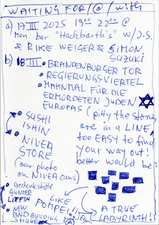 WAITING FOR/@/WITH
a) 17 III 2025 19:00 22:00 @
Mon bar "Hackbarth's" W/ J.S.
& RIKE WEIGER & SIMON
SUZUKI
b) 18 III
• BRANDENBURGER TOR
• REGIERUNGSVIERTEL
• MAHNMAL FÜR DIE
ERMORDETEN JUDEN
EUROPAS (pitty the stones
are in a LINE,
too EASY to find
your way out!
better would be:
• SUSHI
ISHIN
• NIVEA
STORE
(our photo
on NIVEA cans)
• NEW
BND BUILDING
LIKE
POPPELS
A TRUE
LABYRINTH!